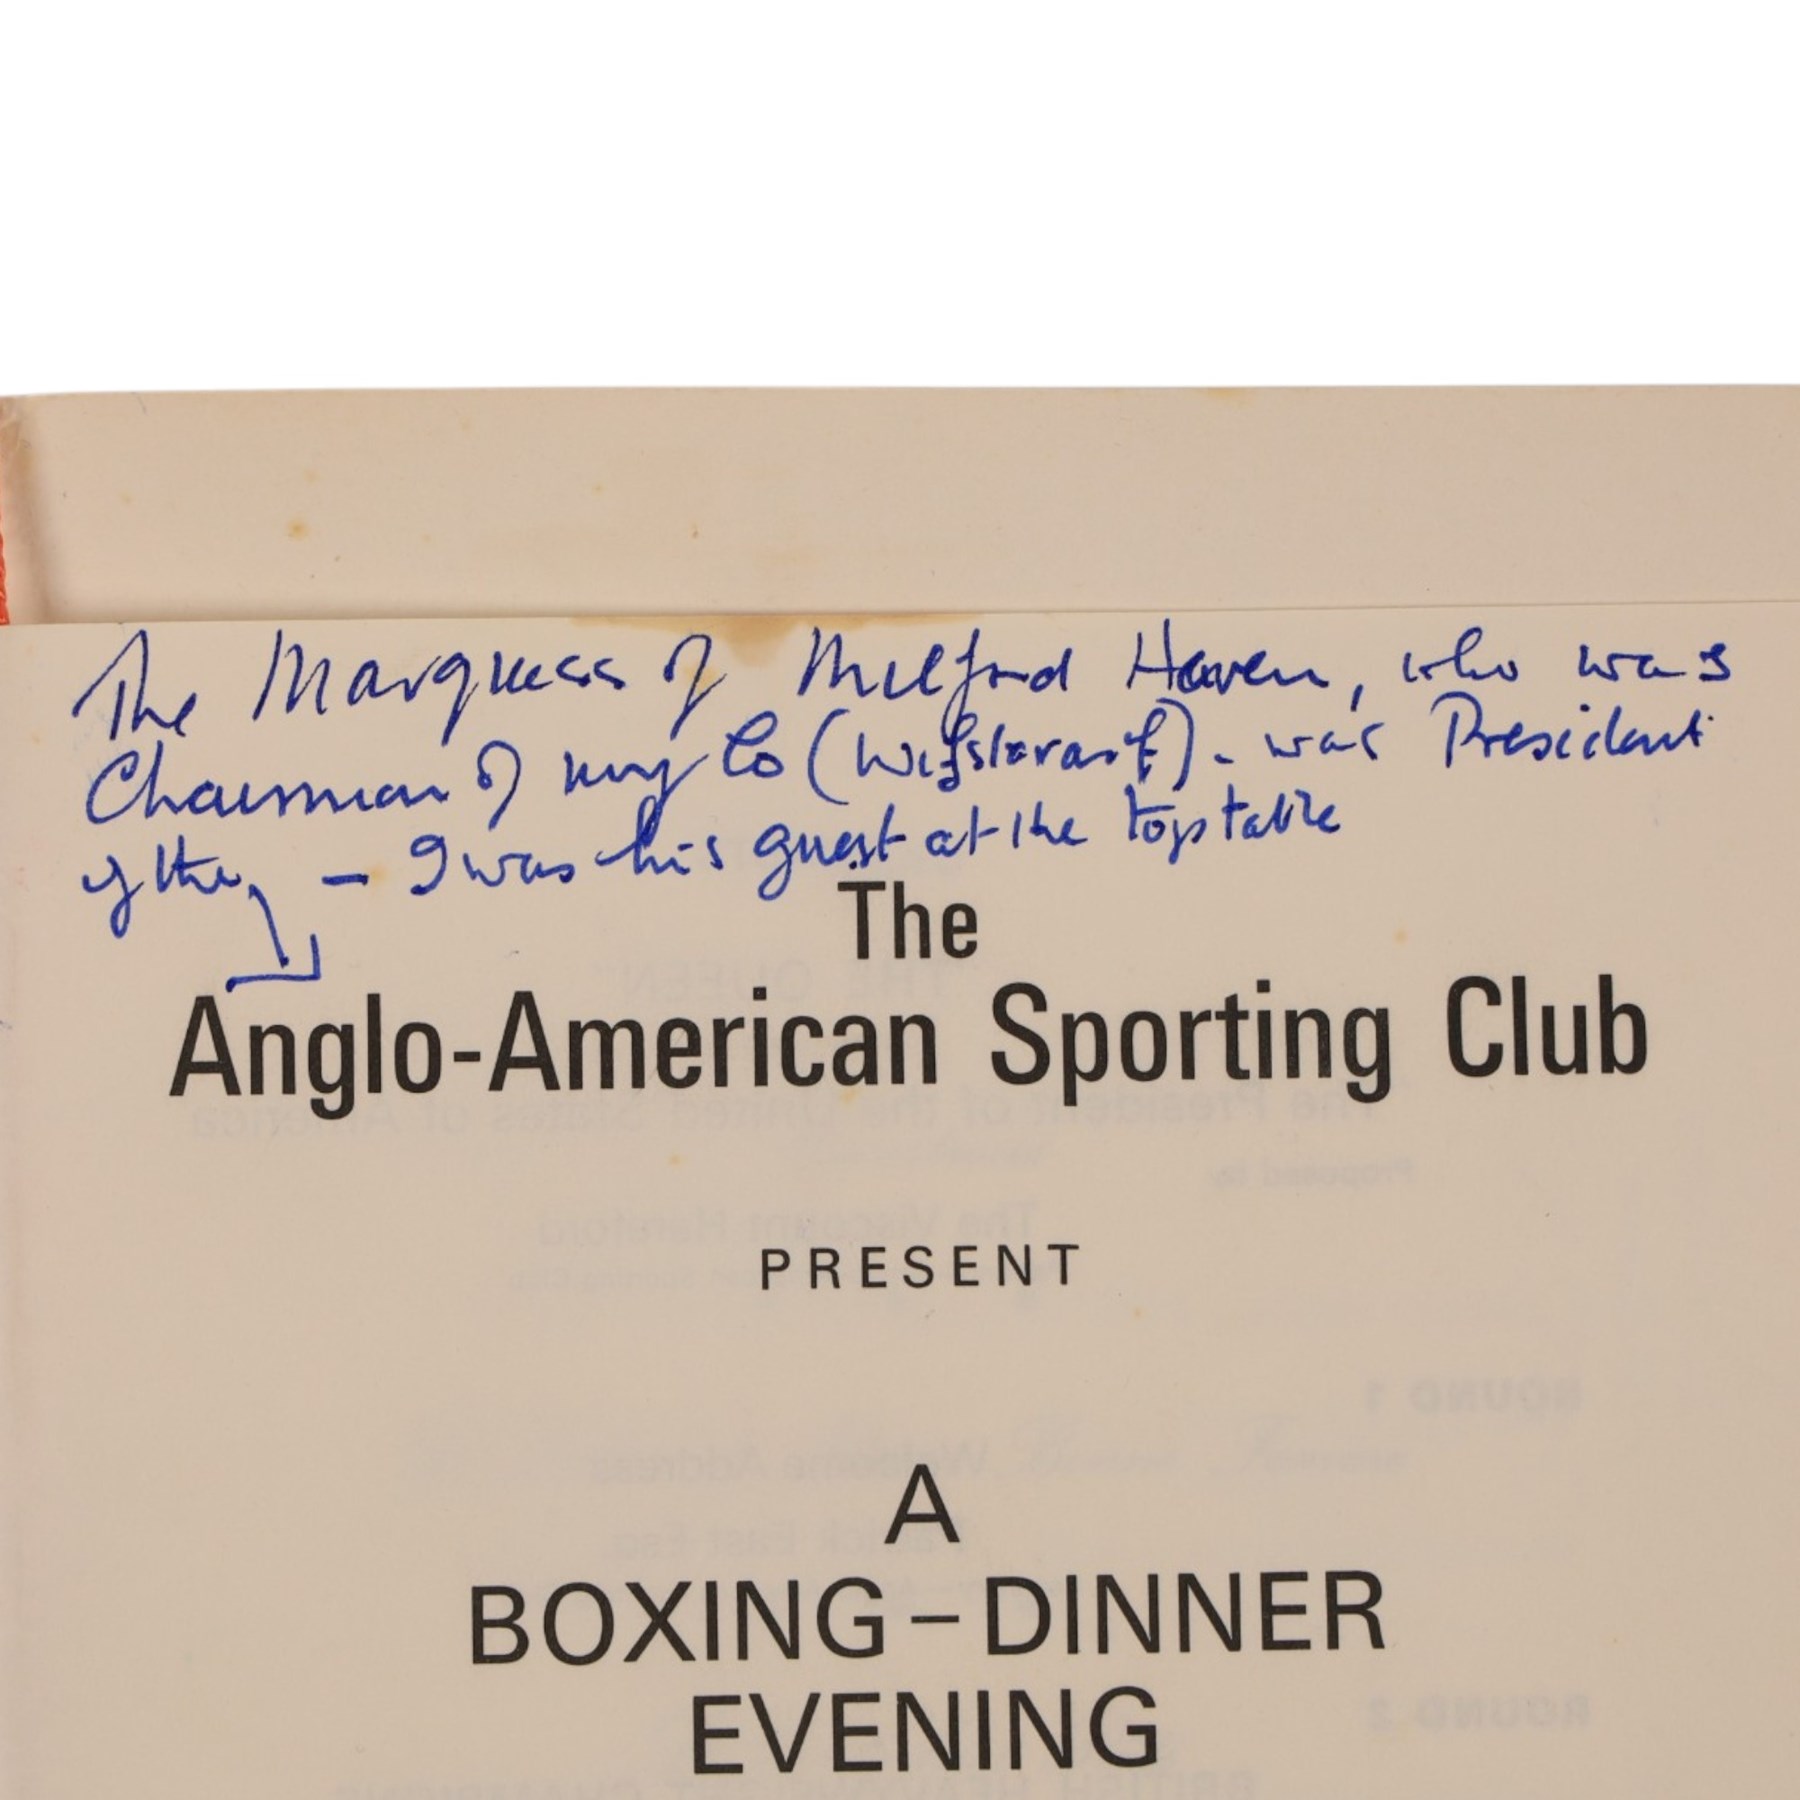 The Marquess of Milford Haven, who was
Chairman of my Co ( ) - was President
of the - I was his guest at the top table
The
Anglo-American Sporting Club
PRESENT
A
BOXING–DINNER
EVENING